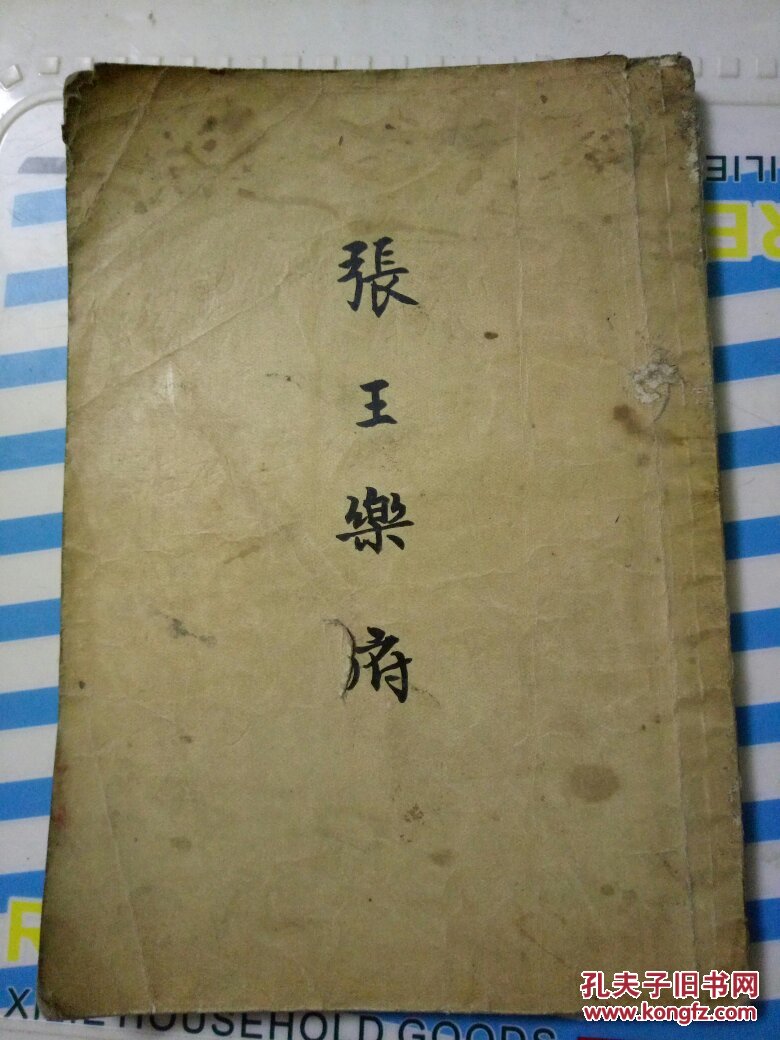 張王樂府
RE
XILIE HOUSEHOLD GOODS
孔夫子旧书网
www.kongfz.com